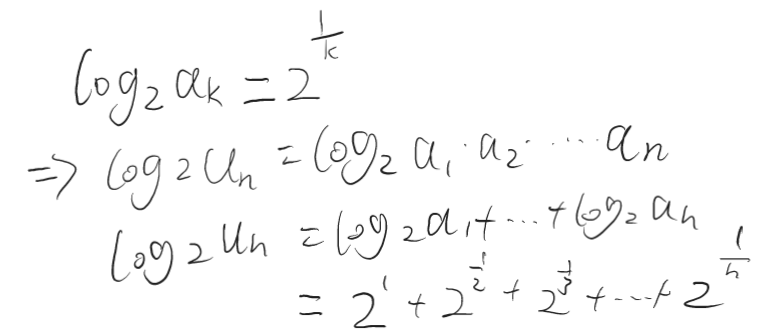 log₂ aₖ = 2^(1/k)
⇒ log₂ uₙ = log₂ a₁ · a₂ · ⋯ aₙ
log₂ uₙ = log₂ a₁ + ⋯ + log₂ aₙ
= 2^1 + 2^(1/2) + 2^(1/3) + ⋯ + 2^(1/n)